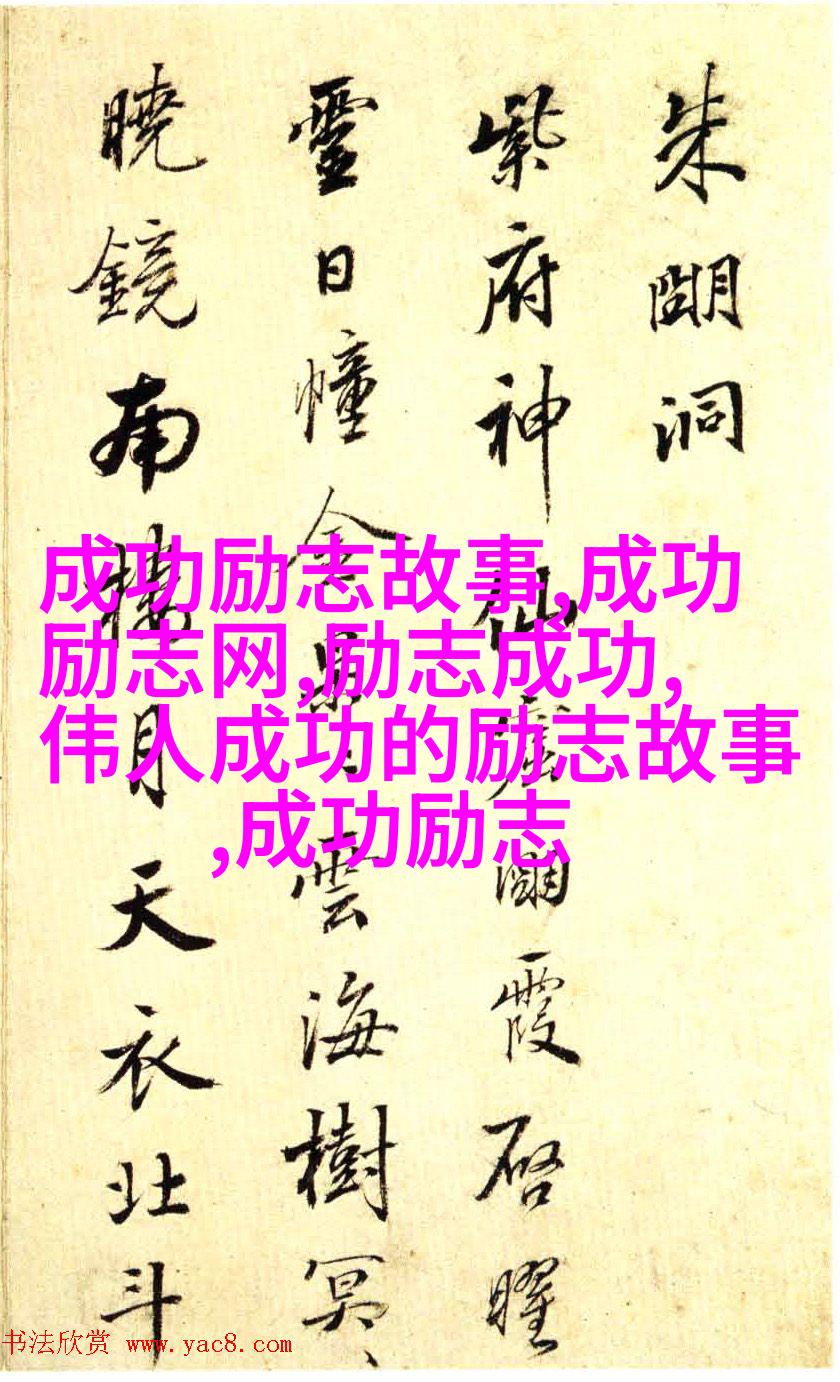 朱朙洞
紫府神仙霞啓曜
靈日幢金雲海樹冥、
曉鏡南樓月天衣北斗
成功励志故事,成功
励志网,励志成功,
伟人成功的励志故事
,成功励志
书法欣赏 www.yac8.com